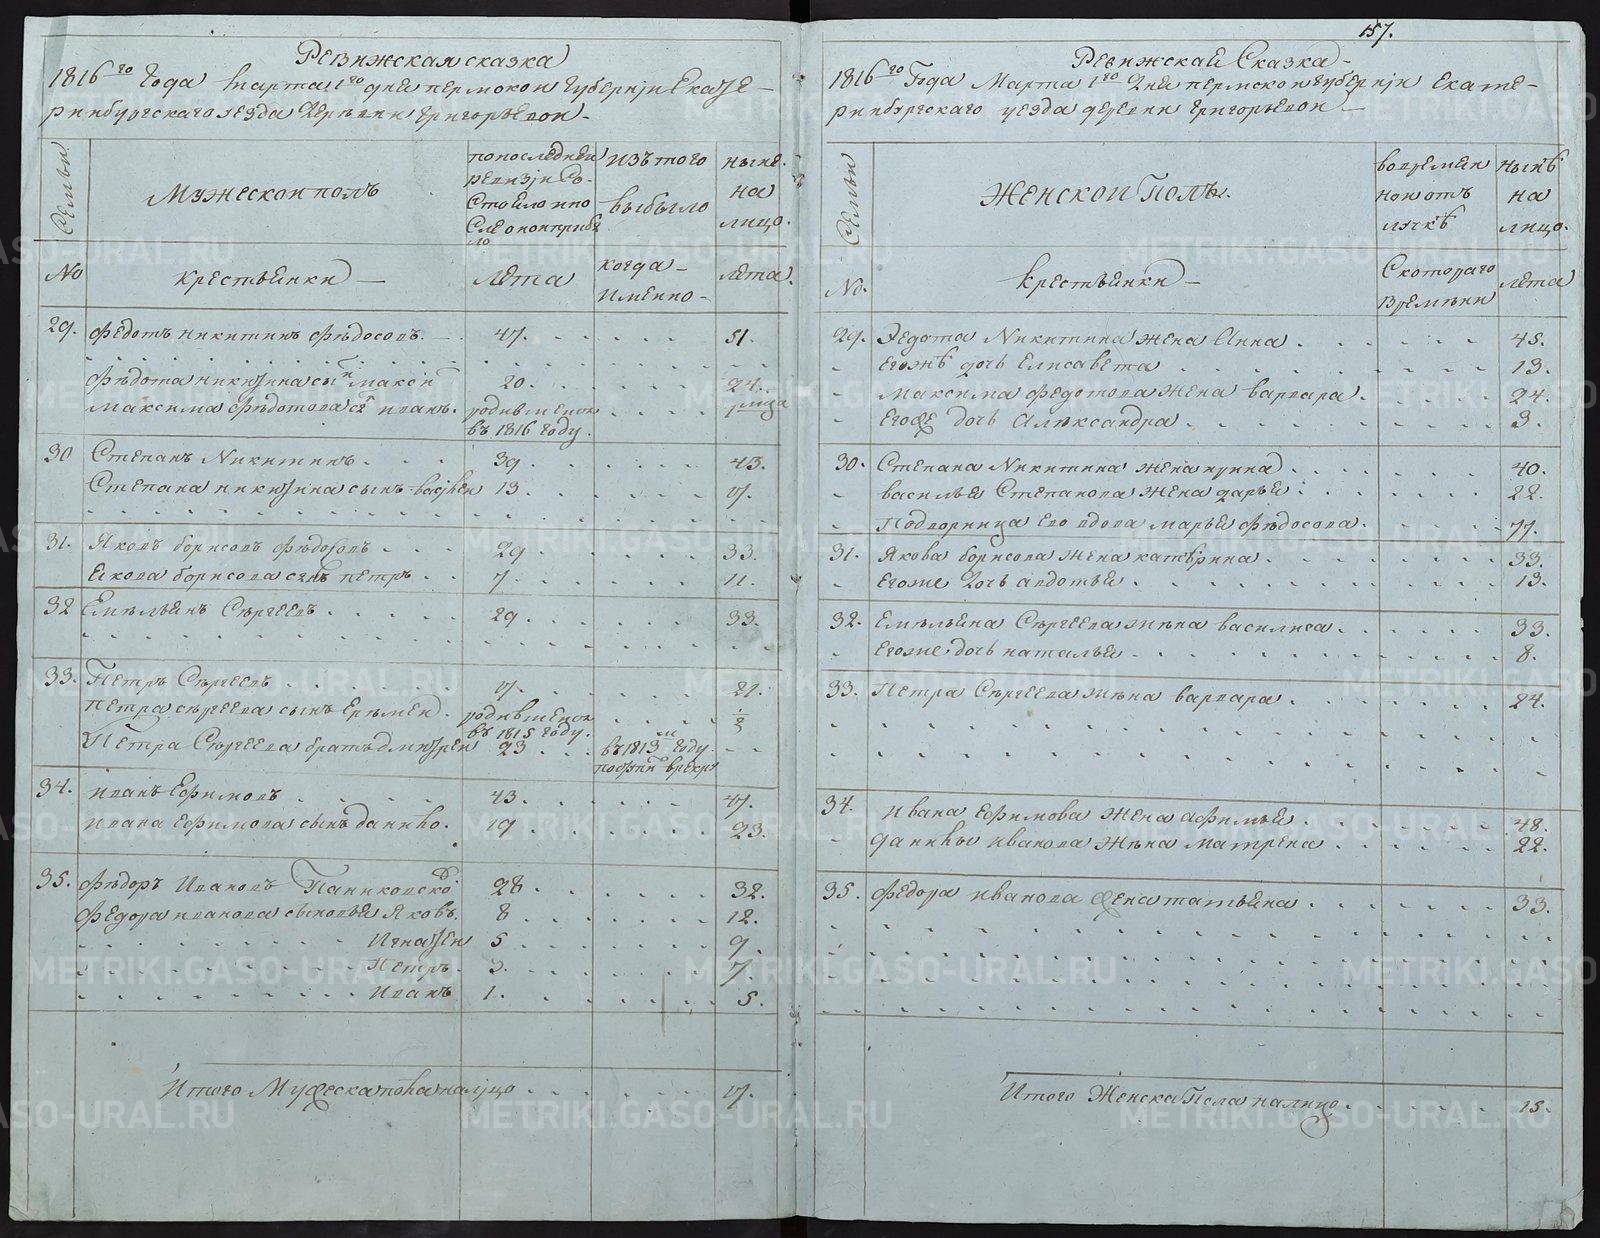 Ревижская сказка
1816го Года Марта 1го дня пермской Губернiи Екате-
ринбургскаго уезда деревни Григорьевой-
Семьи
Мужеской полъ
по последней ревизiи состояло и после оной прибыло
изъ того выбыло
ныне на лицо.
No
крестьяни
лета
когда именно
лета.
29. Федотъ никитинъ Федосовъ. 47. 51.
Федота никитина сынъ максимъ 20. 24.
Максима Федотова сынъ иванъ. родившейся въ 1816 году.
30 Степанъ Никитинъ. 39. 43.
Степана никитина сынъ васiлей 13. 17.
31. Яковъ борисовъ Федосовъ 29. 33.
Якова борисова сынъ петръ. 7. 11.
32 Емельянъ Сергеевъ. 29. 33.
33. Петръ Сергеевъ. 17. 21.
петра сергеева сынъ Еремей. родившейся въ 1815 году. 1/2
Петра Сергеева братъ дмитрей 23 въ 1813м году
34. иванъ Ефимовъ 43. 47.
ивана Ефимова сынъ данило. 19. 23.
35. Федоръ Ивановъ Паниковской 28. 32.
Федора иванова сыновья Яковъ. 8. 12.
Игнатей 5. 9.
Петръ. 3. 7.
Иванъ 1. 5.
Итого Мужеска пола налицо 17.
157.
Ревижская Сказка
1816го Года Марта 1го Дня пермской губернiи Екате-
ринбургскаго уезда деревни григорьевой
Семьи
Женской Полъ.
во времянной отлучкѣ
нынѣ на лицо.
No.
крестьянки
С котораго времяни
лета
29. Федота Никитина жена Анна 45.
Егожъ дочь Елисавета 13.
максима Федотова жена варвара. 24.
Егоже дочь Александра 3.
30. Степана Никитина жена 40.
василья Степанова жена дарья 22.
Подворница ево вдова марья Федосова. 77.
31. Якова борисова жена катерина 33.
Егоже Дочь авдотья 13.
32. Емельяна Сергеева жена василиса 33.
Егоже дочь наталья 8.
33. Петра Сергеева жена варвара 24.
34. ивана Ефимова жена афимья 48.
данилы иванова жена матрена 22.
35. Федора иванова жена татьяна 33.
Итого Женска Пола налицо. 15.
METRIKI.GASO-URAL.RU